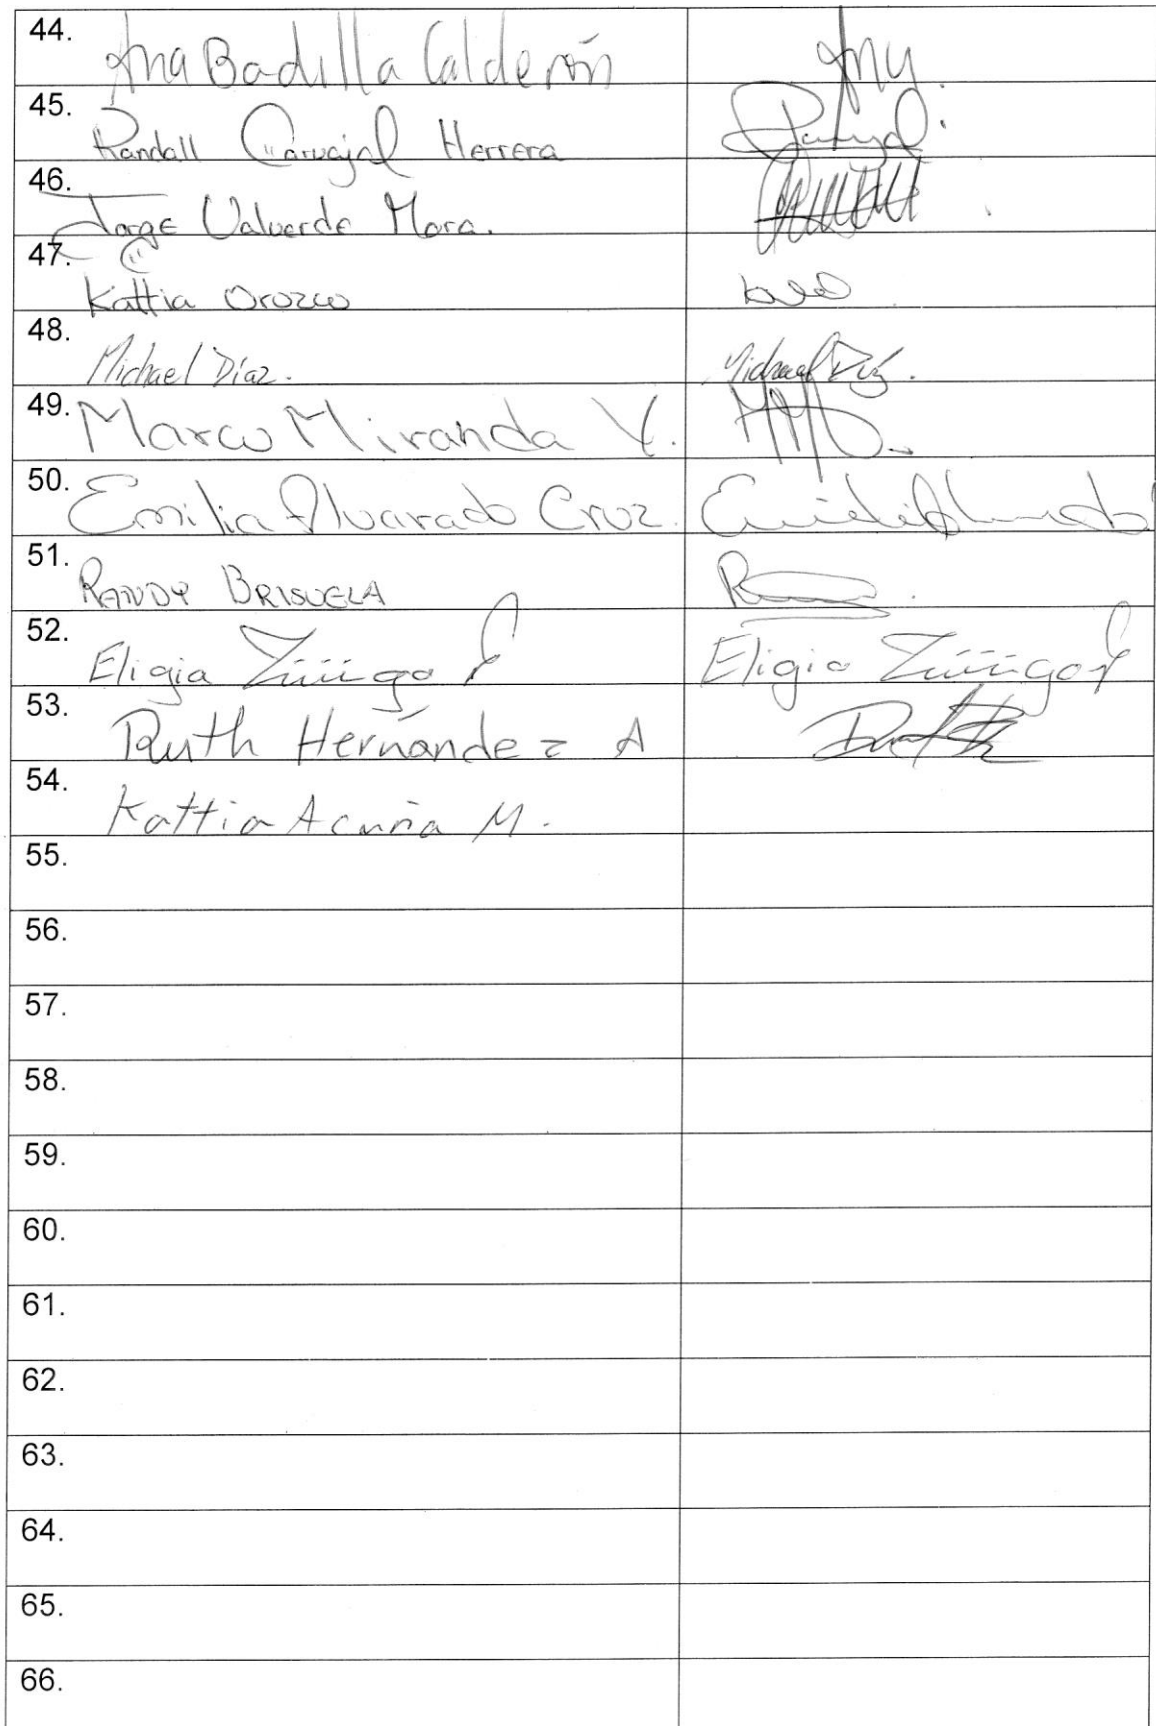 44. Ana Badilla Calderón Any.
45. Randall Carvajal Herrera
46. Jorge Valverde Mora.
47. Kattia Orozco
48. Michael Díaz. Michael Díaz.
49. Marco Miranda V.
50. Emilia Alvarado Cruz.
51. RANDY BRISUELA
52. Eligia Zúñiga Eligia Zúñiga
53. Ruth Hernández A
54. Kattia Acuña M.
55.
56.
57.
58.
59.
60.
61.
62.
63.
64.
65.
66.